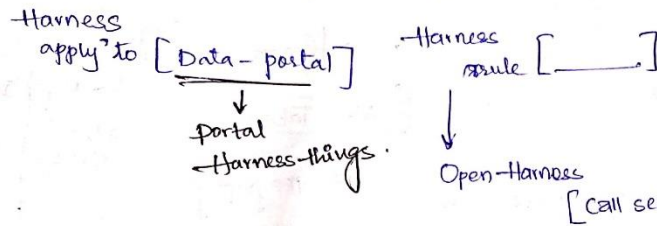 Harness
apply to [Data-portal]
↓
portal
Harness-things.
Harness
rule [______]
↓
Open-Harness
[Call se